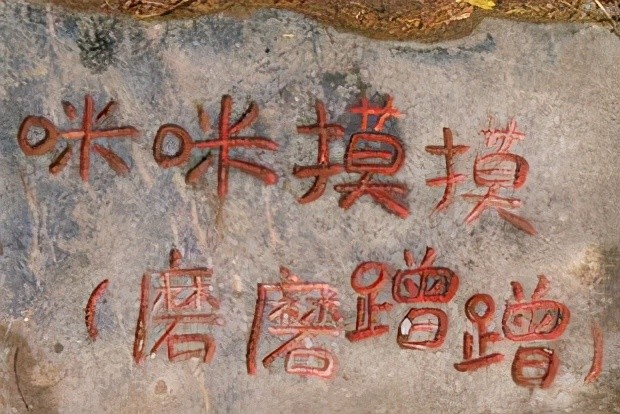 咪咪摸摸
(磨磨蹭蹭)